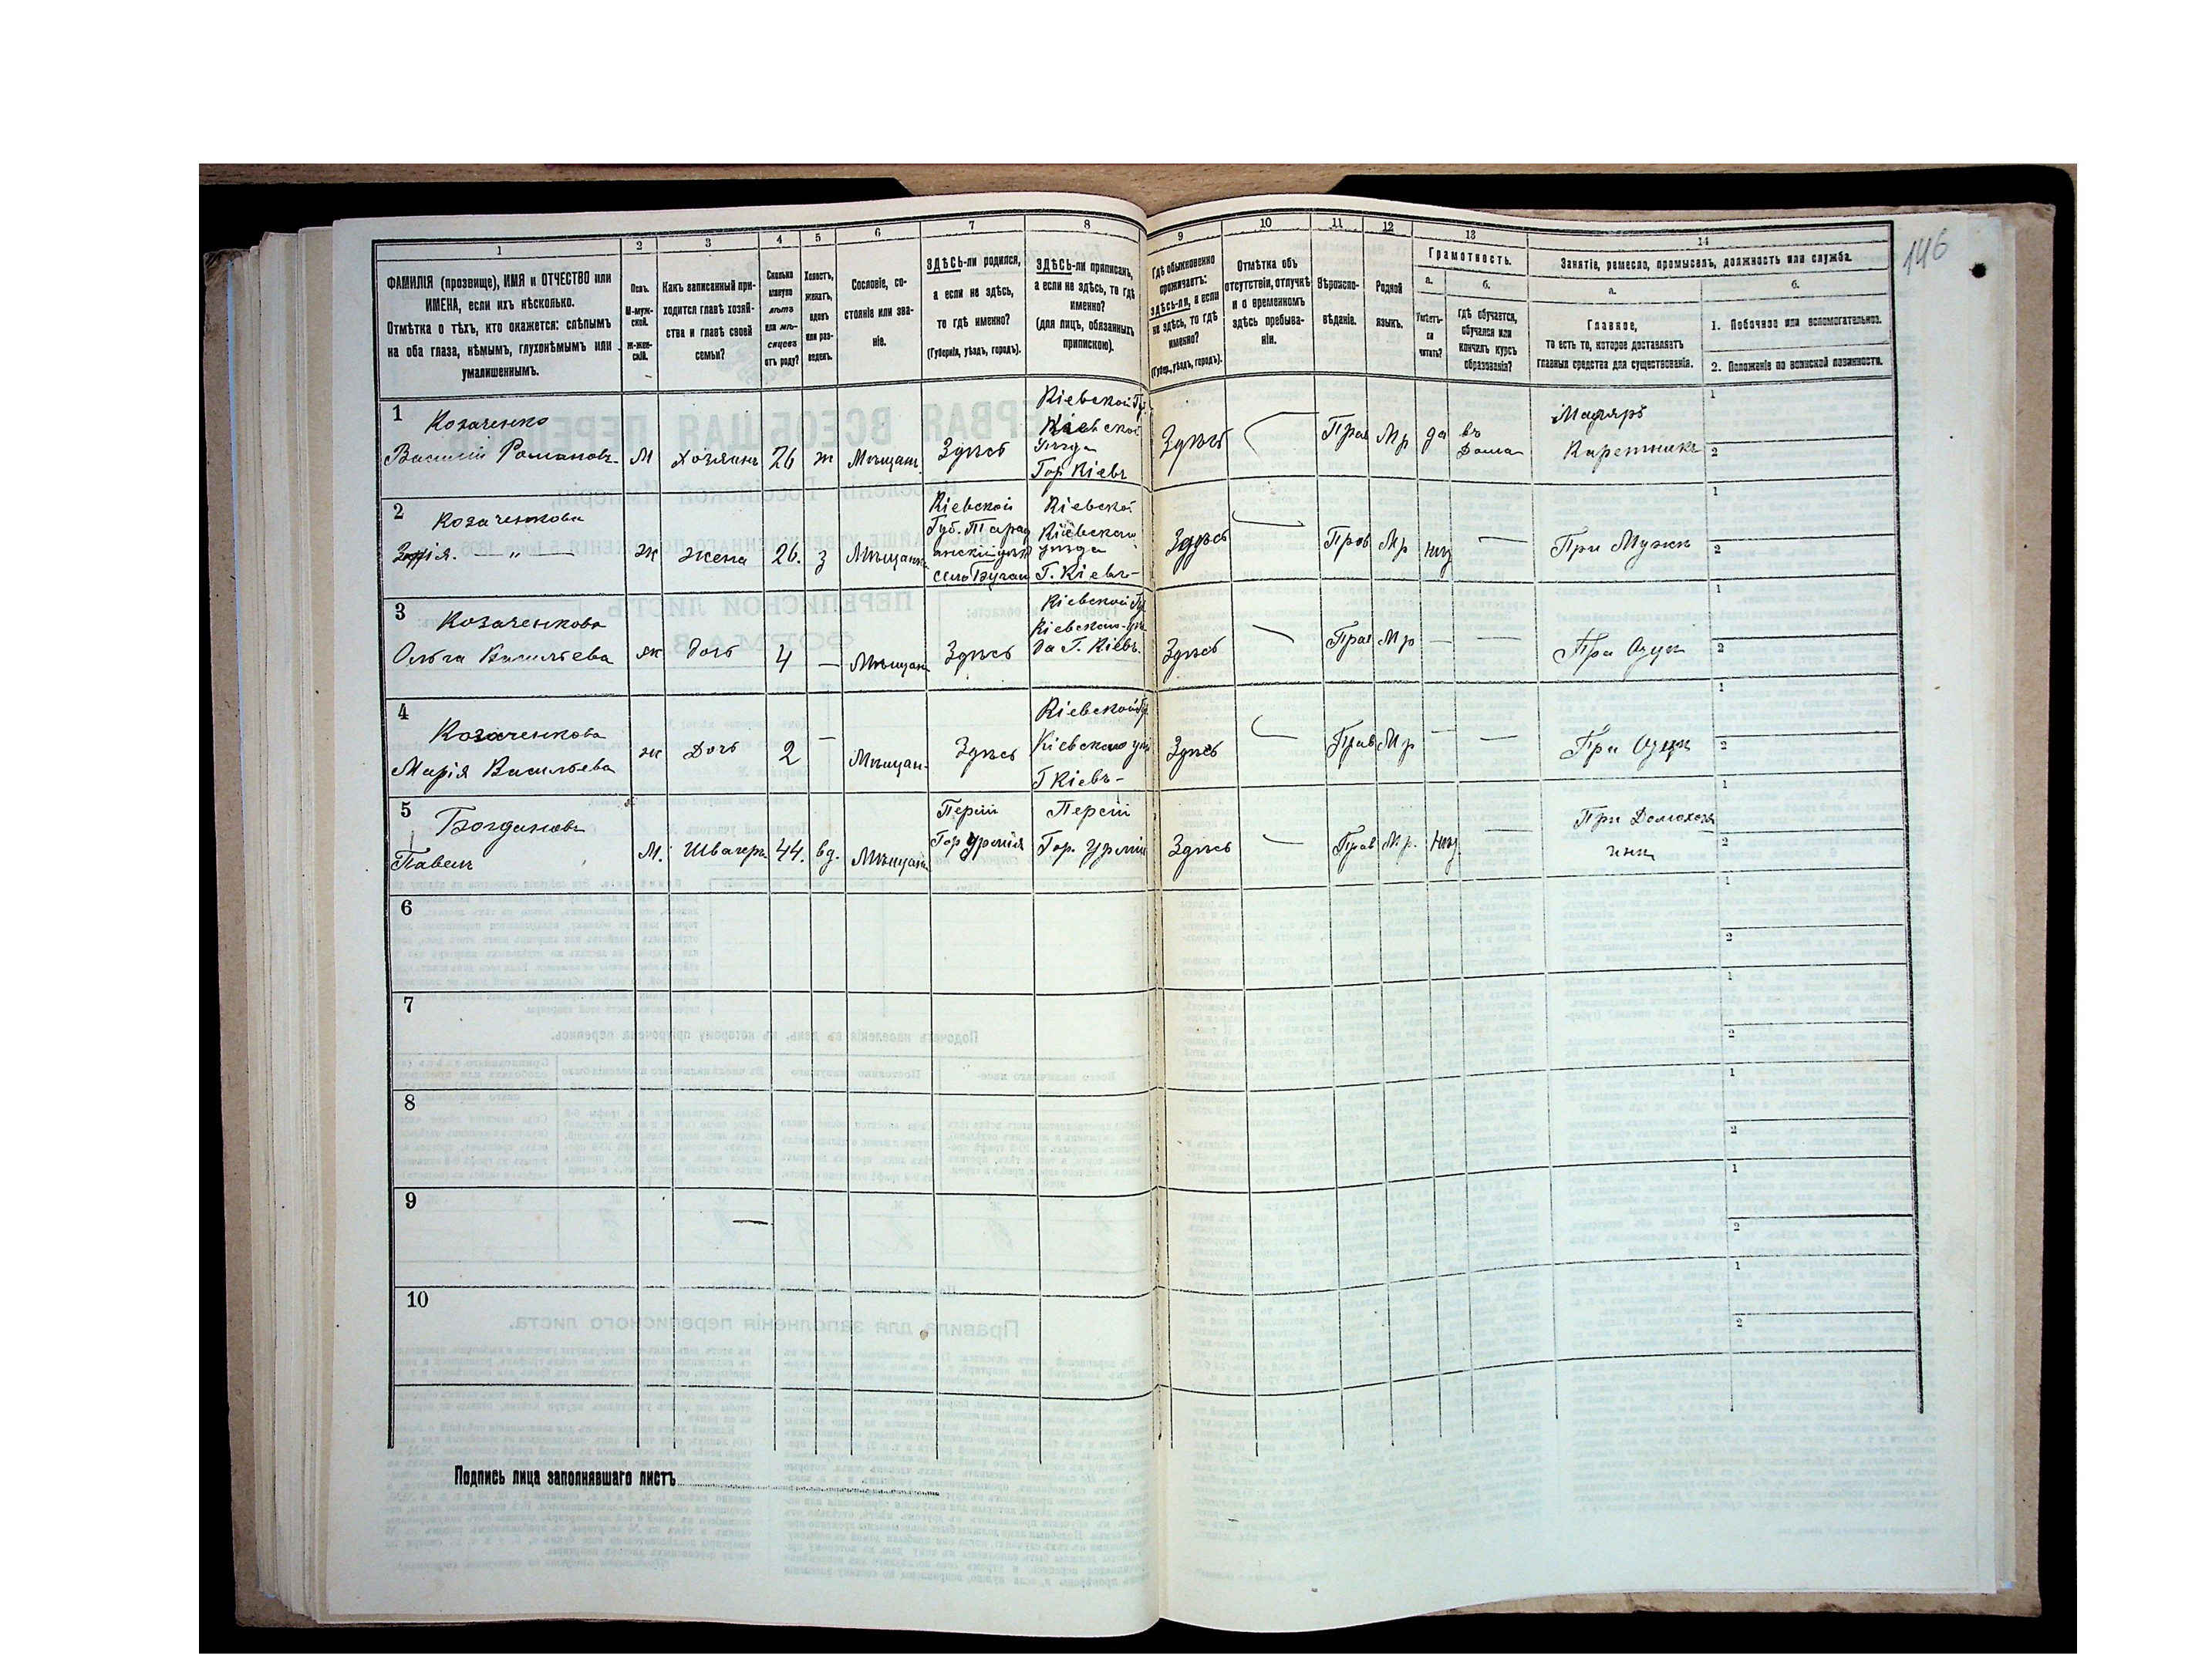 146
1 2 3 4 5 6 7 8 9 10 11 12 13 14
ФАМИЛІЯ (прозвище), ИМЯ и ОТЧЕСТВО или
ИМЕНА, если ихъ нѣсколько.
Отмѣтка о тѣхъ, кто окажется: слѣпымъ
на оба глаза, нѣмымъ, глухонѣмымъ или
умалишеннымъ.
Полъ.
М-муж-
ской.
ж-жен-
скій.
Какъ записанный при-
ходится главѣ хозяй-
ства и главѣ своей
семьи?
Сколько
минуло
лѣтъ
или мѣ-
сяцевъ
отъ роду?
Холостъ,
женатъ,
вдовъ
или раз-
веденъ.
Сословіе, со-
стояніе или зва-
ніе.
ЗДѢСЬ-ли родился,
а если не здѣсь,
то гдѣ именно?
(Губернія, уѣздъ, городъ).
ЗДѢСЬ-ли приписанъ,
а если не здѣсь, то гдѣ
именно?
(для лицъ, обязанныхъ
припискою).
Гдѣ обыкновенно
проживаетъ:
здѣсь-ли, а если
не здѣсь, то гдѣ
именно?
(Губер., уѣздъ, городъ).
Отмѣтка объ
отсутствіи, отлучкѣ
и о временномъ
здѣсь пребыва-
ніи.
Вѣроиспо-
вѣданіе.
Родной
языкъ.
Грамотность.
а.
Умѣетъ-
ли
читать?
б.
гдѣ обучается,
обучался или
кончилъ курсъ
образованія?
Занятіе, ремесло, промыселъ, должность или служба.
а.
Главное,
то есть то, которое доставляетъ
главныя средства для существованія.
б.
1. Побочное или вспомогательное.
2. Положеніе по воинской повинности.
1
Козаченко
Василій Романовъ
М
хозяинъ
26
ж
Мѣщан
Здѣсь
Кіевской Гу
Кіевской
уѣзда
Гор Кіевъ
Здѣсь
Прав
Мр
да
въ
Дома
Маляръ
Каретникъ
1
2
2
Козаченкова
— „ —
ж
жена
26.
з
Мѣщанк
Кіевской
Губ. Тараща
анскій уѣзд
село Бугаи
Кіевской
Кіевскаго
уѣзда
Г. Кіевъ-
Здѣсь
Прав
Мр
нѣт
—
При Мужѣ
1
2
3
Козаченкова
Ольга Васильева
ж
дочь
4
—
Мѣщан
Здѣсь
Кіевской Гу
Кіевскаго уѣз
да Г. Кіевъ.
Здѣсь
Прав
Мр
—
—
При Отцѣ
1
2
4
Козаченкова
Марія Васильева
ж
Дочь
2
—
Мѣщан-
Здѣсь
Кіевской Гу
Кіевскаго уѣз
Г Кіевъ-
Здѣсь
Прав
Мр
—
—
При Отцѣ
1
2
5
Богдановъ
Павелъ
М.
Швагеръ
44.
вд.
Мѣщанъ
Персіи
Гор Урмія
Персіи
Гор. Урмія
Здѣсь
—
Прав
Мр.
Нѣт
—
При Домохозя
инѣ
1
2
6
1
2
7
1
2
8
1
2
9
—
1
2
10
1
2
Подпись лица заполнявшаго листъ